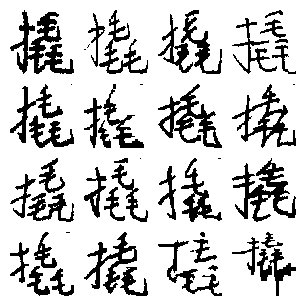 撬撬撬撬
撬撬撬撬
撬撬撬撬
撬撬撬撬